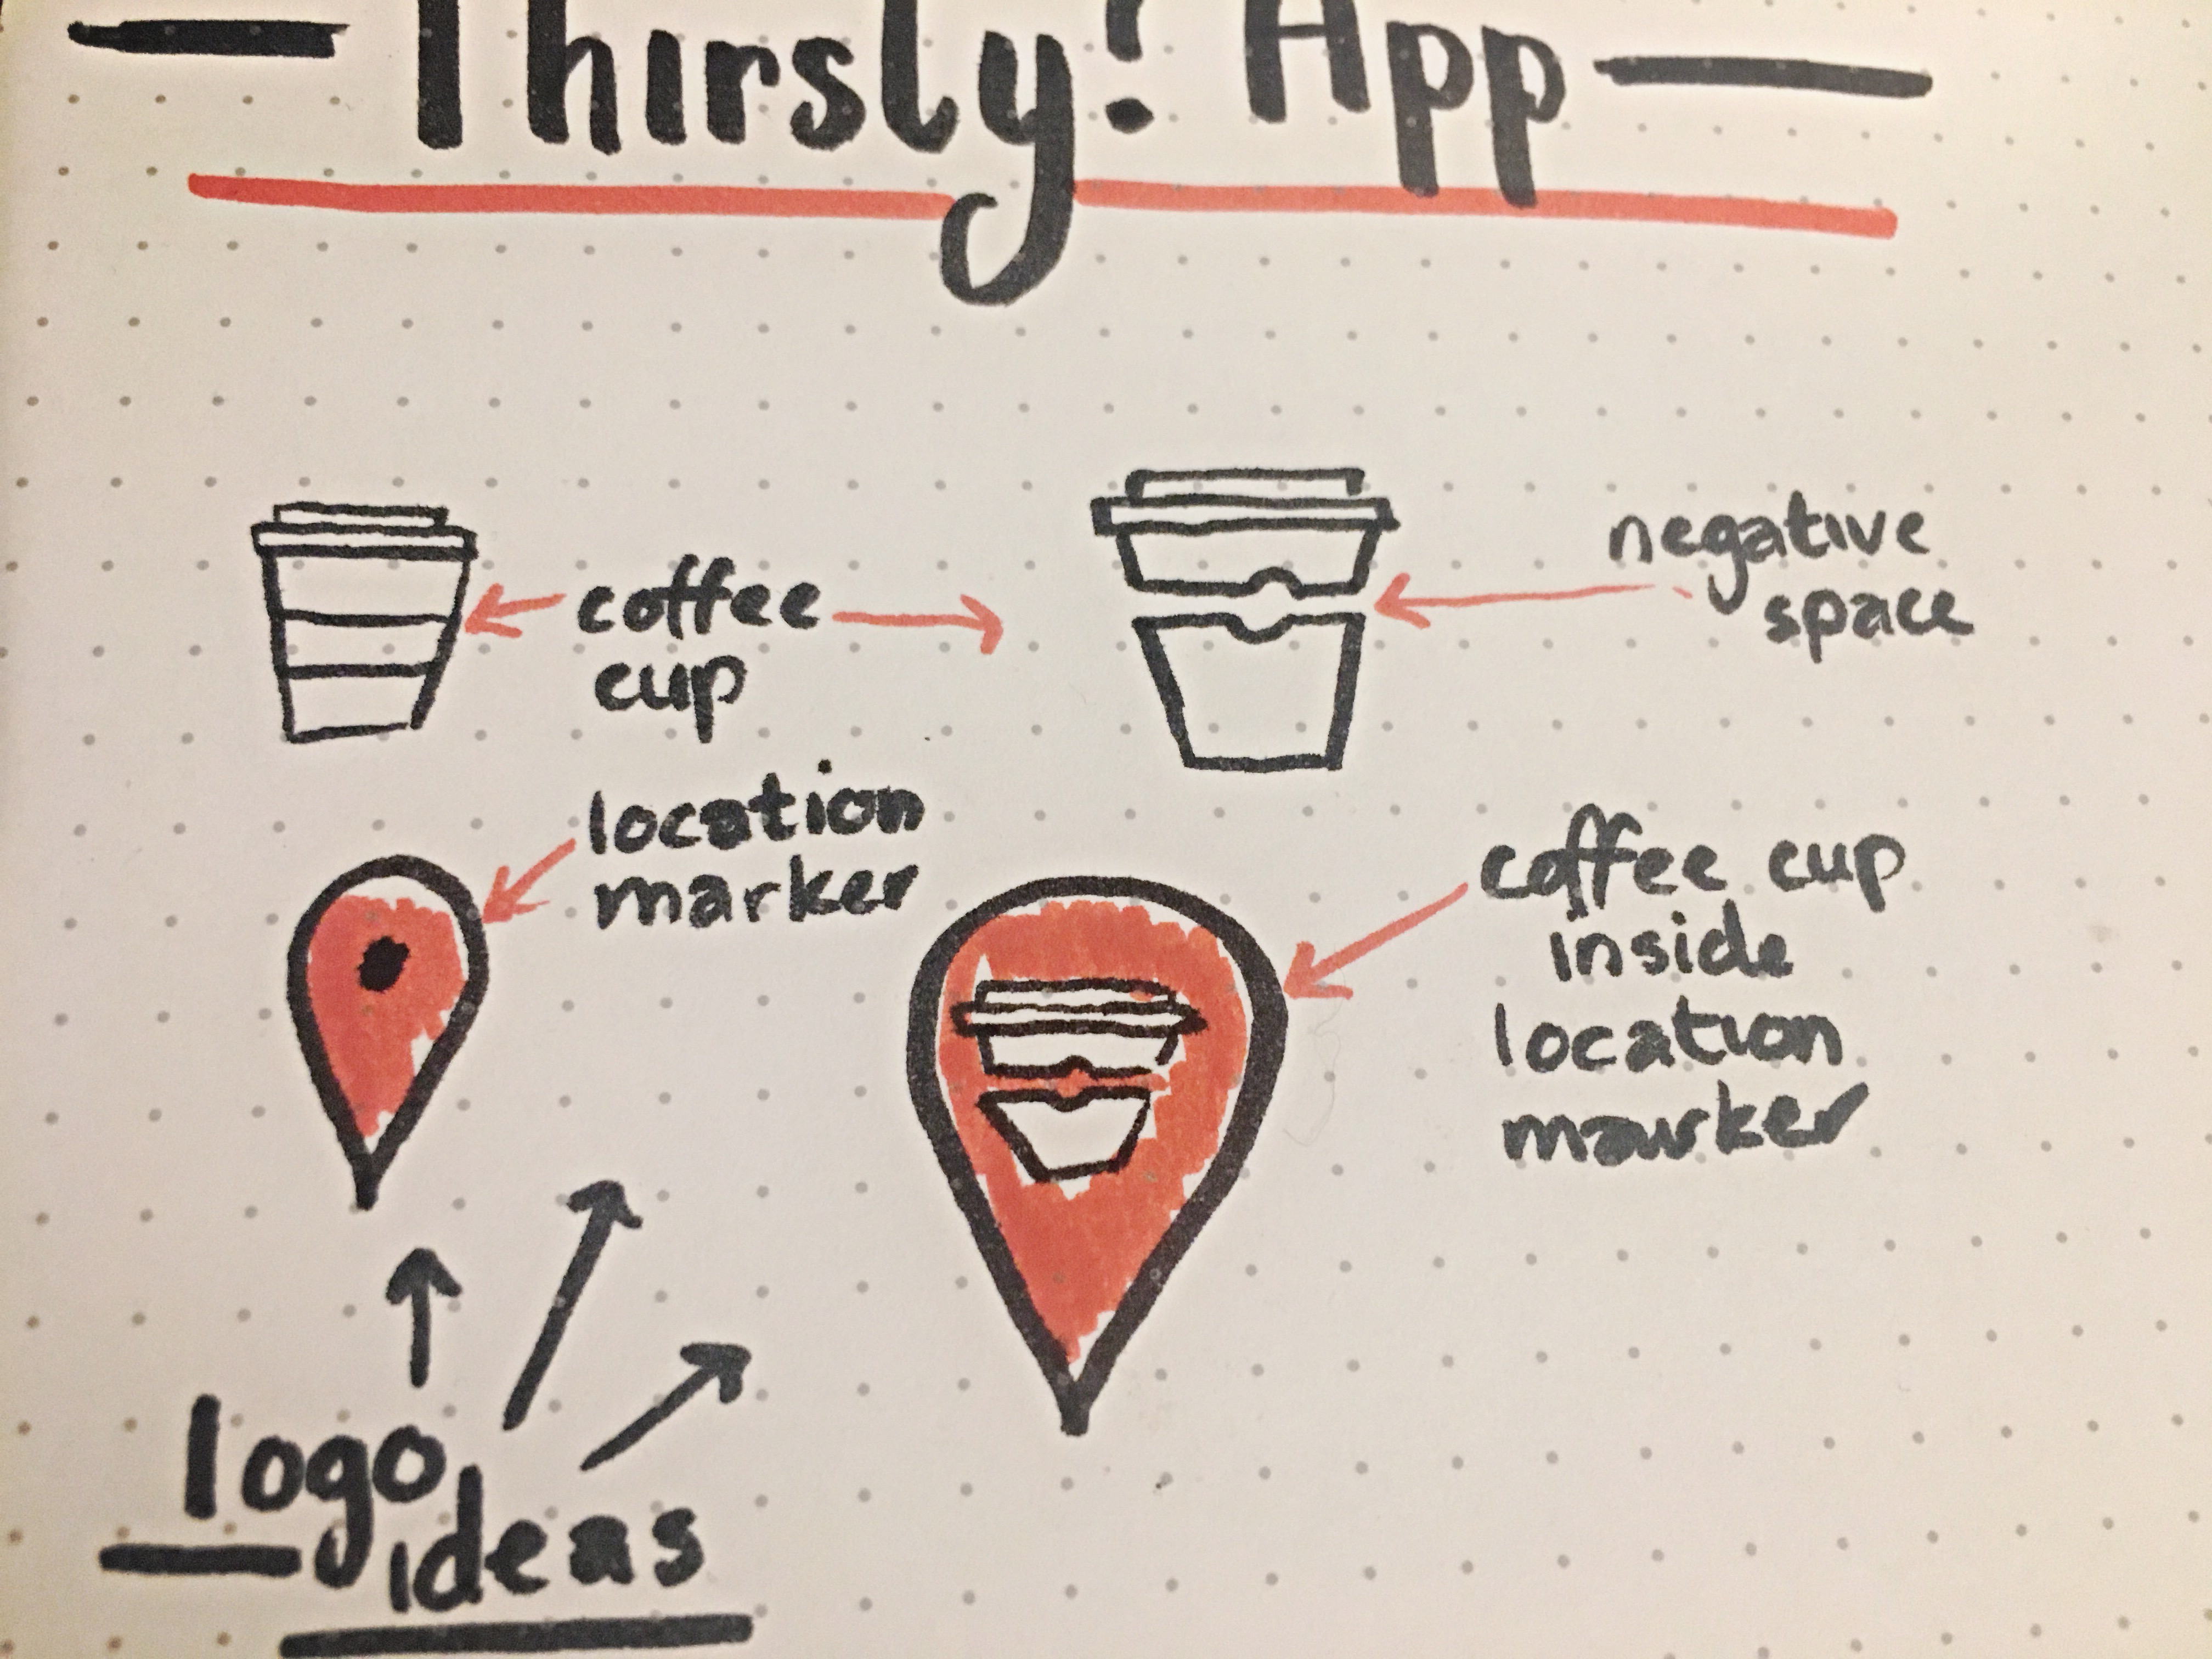 Thirsty! App
coffee
cup
negative
space
location
marker
coffee cup
inside
location
marker
logo
ideas